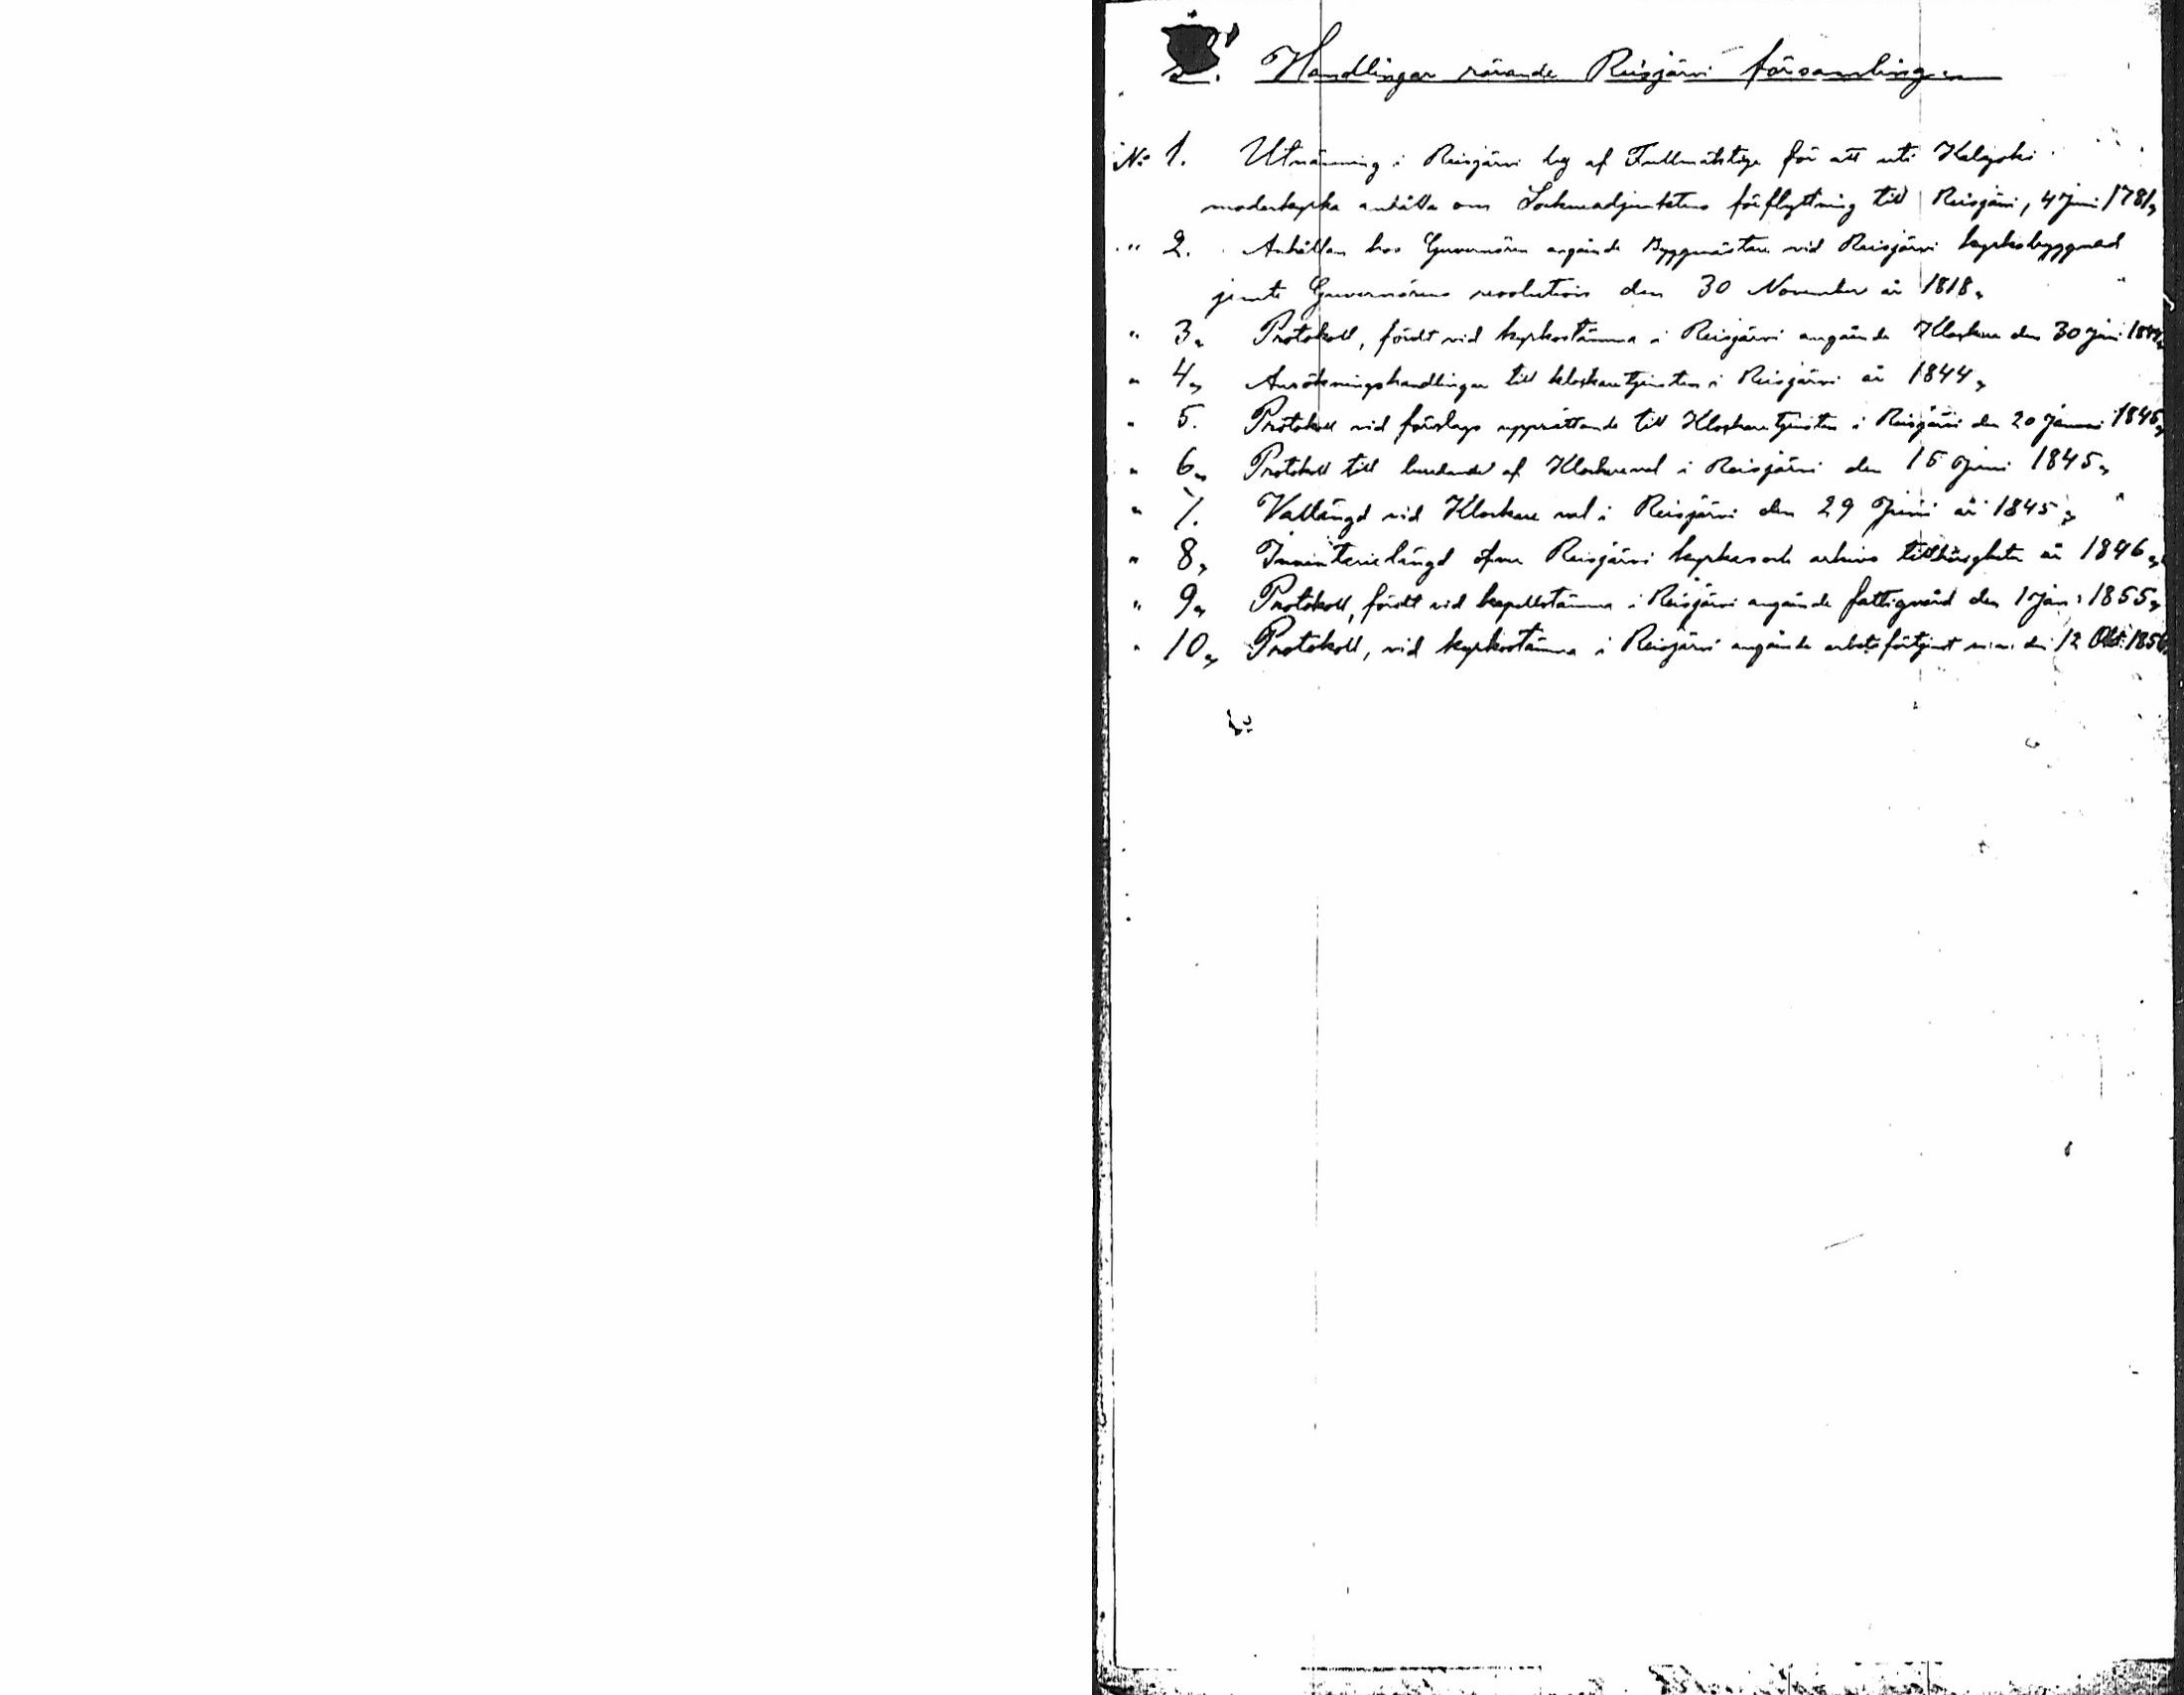 Handlingar rörande Reisjärvi församlingen
No 1. Utnämning i Reisjärvi by af Fullmäktige för att uti Kalajoki
moderkyrka anhålla om Sockneadjunktens förflyttning till Reisjärvi, 4 Juni 1781,
" 2. Anhållan hos Guvernören angående Byggmästare vid Reisjärvi kyrkobyggnad
jemte Guvernörens resolution den 30 November år 1818,
" 3, Protokoll, fördt vid kyrkostämma i Reisjärvi angående Klockare den 30 Juni
" 4, Ansökningshandlingar till klockaretjensten i Reisjärvi år 1844,
" 5. Protokoll vid förslags upprättande till Klockaretjensten i Reisjärvi den 20 Januari 1845,
" 6, Protokoll till af Klockareval i Reisjärvi den 15 Juni 1845,
" 7. Vallängd vid Klockare val i Reisjärvi den 29 Juni år 1845,
" 8, Inventarielängd öfver Reisjärvi kyrkas och arkivs tillhörigheter år 1846,
" 9, Protokoll, fördt vid kapellstämma i Reisjärvi angående fattigvård den 1 Jan: 1855,
" 10, Protokoll, vid kyrkostämma i Reisjärvi angående arbetsförtjenst m.m. den 12 Okt. 1856,